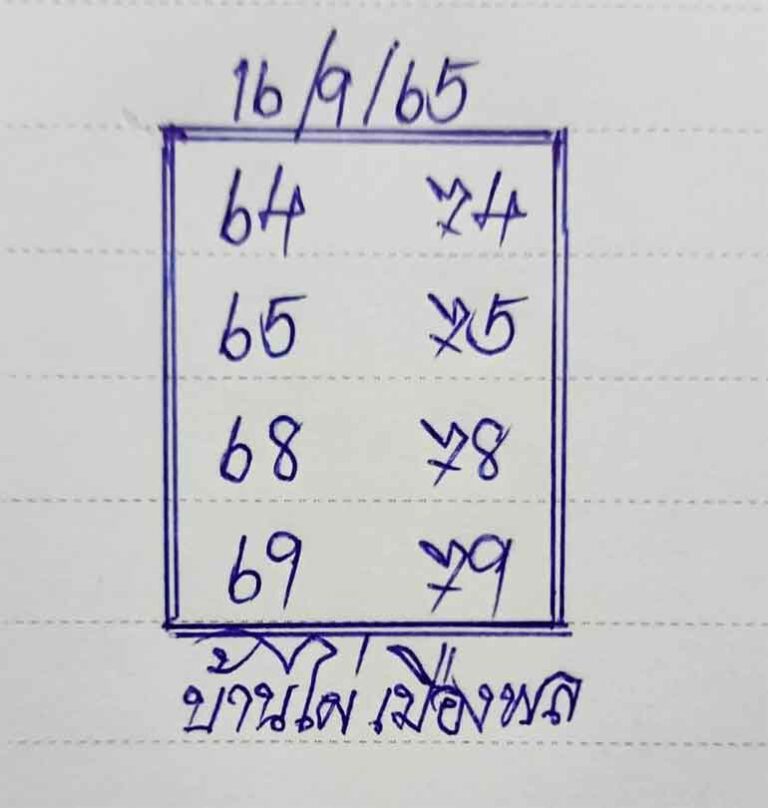 16/9/65
64 74
65 75
68 78
69 79
บ้านไผ่ เมืองพล